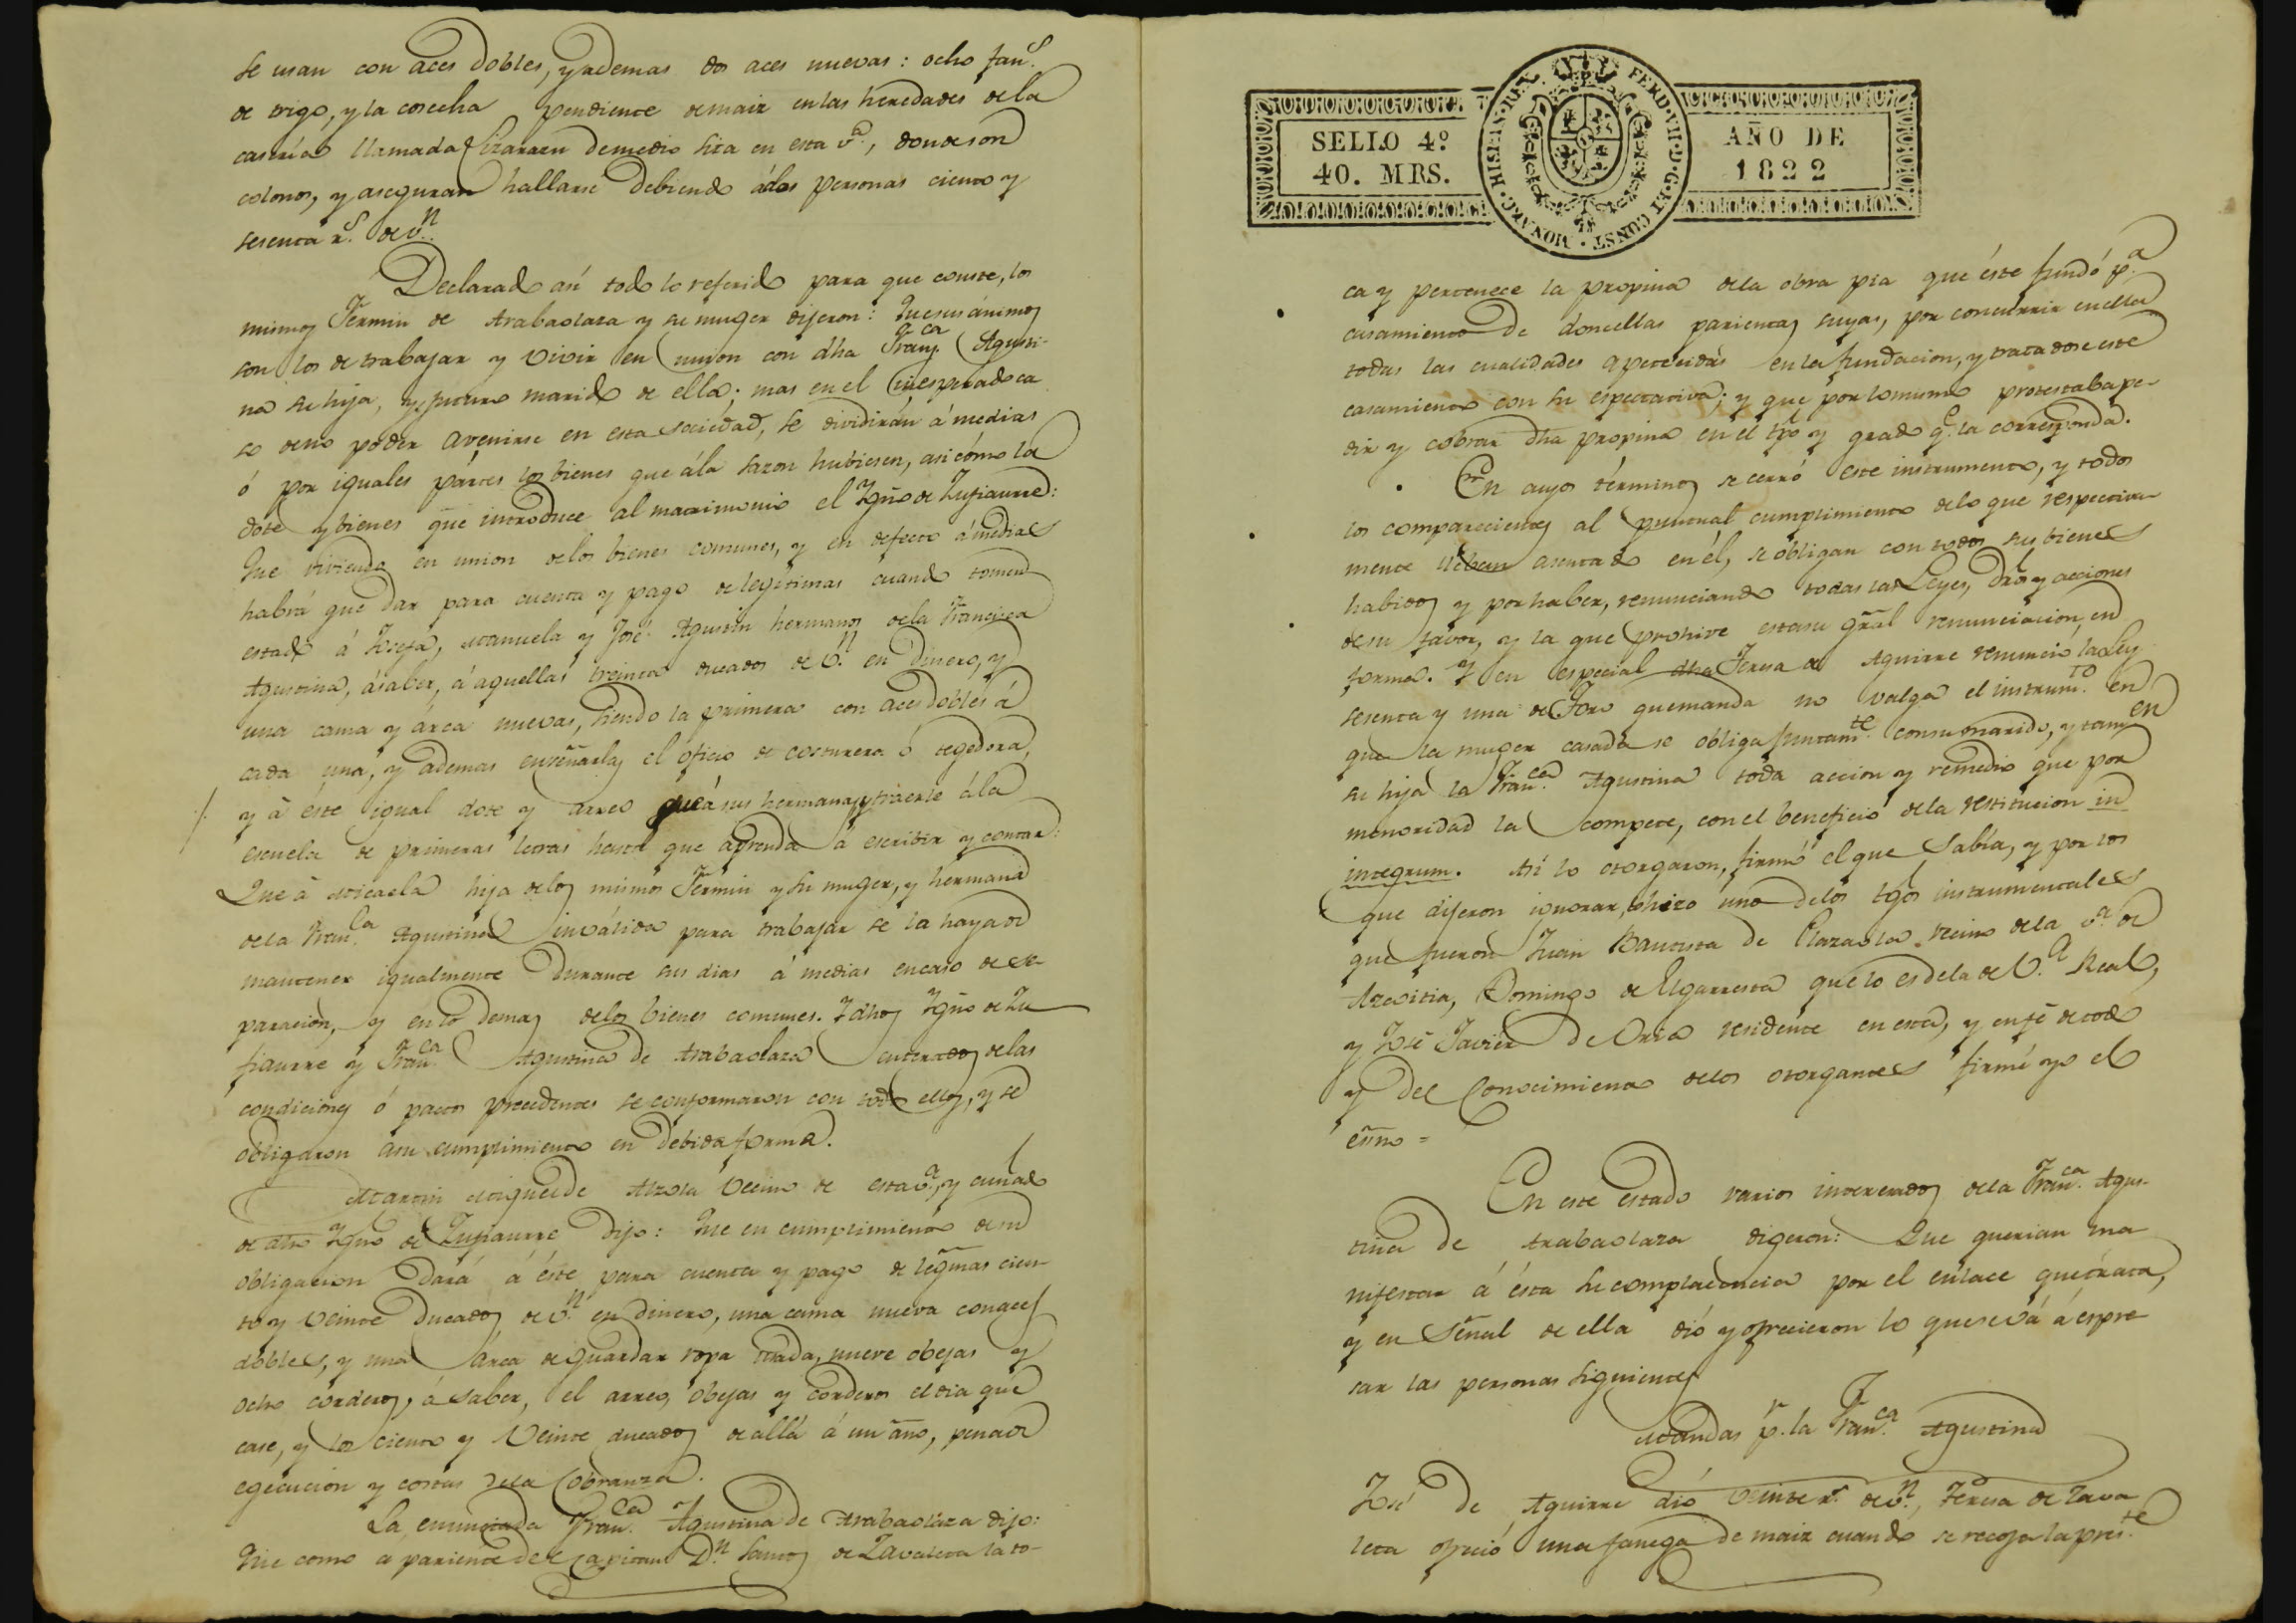 se usan con aces dobles, y ademas dos aces nuevas: ocho fan.s
de trigo, y la cosecha pendiente de maiz en las heredades de la
casería llamada Lizararzu de medio sita en esta v.a, donde son
colonos, y aseguran hallarse debiendo á dos personas ciento y
sesenta r.s de v.n
Declarado así todo lo referido para que conste, los
mismos Fermin de Arabaolaza y su muger dijeron: Que sus ánimos
son los de trabajar y vivir en union con dha Fran.ca Agusti-
na su hija, y futuro marido de ella; mas en el inesperado ca
so de no poder avenirse en esta sociedad, se dividirán á medias
ó por iguales partes los bienes que á la sazon hubiesen, asi cómo la
dote y bienes que introduce al matrimonio el Ygño de Zufiaurre:
Que viviendo en union de los bienes comunes, y en defecto á medias
habrá que dar para cuenta y pago de legítimas cuando tomen
estado á Josefa, Manuela y José Agustin hermanos de la Francisca
Agustina, á saber, á aquellas treinta ducados de v.n en dinero, y
una cama y árca nuevas, siendo la primera con aces dobles á
cada una, y ademas enseñarlas el oficio de costurera ó tegedora,
y á éste igual dote y arreo que á sus hermanas, y traerle á la
escuela de primeras letras hasta que aprenda á escribir y contar:
Que á Micaela hija de los mismos Fermin y su muger, y hermana
de la Fran.ca Agustina inválida para trabajar se la haya de
mantener igualmente durante sus dias á medias en caso de se-
paracion, y en lo demas de los bienes comunes. Y dhos Ygño de Zu
fiaurre y Fran.ca Agustina de Arabaolaza enterados de las
condiciones ó pactos precedentes se conformaron con todos ellos, y se
obligaron a su cumplimiento en debida forma.
Martin Miguel de Alzola vecino de esta v.a, y cuñado
de dho Ygño de Zufiaurre dijo: Que en cumplimiento de su
obligacion dará á éste para cuenta y pago de legmas cien-
to y veinte ducados de v.n en dinero, una cama nueva con aces
dobles, y una árca de guardar ropa usada, nueve obejas y
ocho corderos, á saber, el arreo, obejas y corderos el dia que
case, y los ciento y veinte ducados de allá á un año, pena de
egecucion y costas de la cobranza.
La enunciada Fran.ca Agustina de Arabaolaza dijo:
Que como á pariente del capitan D.n Santos de Zavaleta la to-
SELLO 4º
40. MRS.
HISPAN·REX· FERD·VII·D·G·ET CONST·MONARC·
AÑO DE
1822
ca y pertenece la propina de la obra pia que éste fundó p.a
casamiento de doncellas parientas suyas, por concurrir en ella
todas las cualidades apetecidas en la fundacion, y tratadose este
casamiento con su espectativa; y que por lo mismo protestaba pe-
dir y cobrar dha propina en el tpo y grado q.e la corresponda.
En cuyos términos se cerró este instrumento, y todos
los comparecientes al puntual cumplimiento de lo que respectiva-
mente llevan asentado en él, se obligan con todos sus bienes
habidos y por haber, renunciando todas las Leyes, dros y acciones
de su favor, y la que prohive esta su gral renunciacion, en
forma. Y en especial dha Teresa de Aguirre renunció la Ley
sesenta y una de Toro que manda no valga el instrum.to en
que la muger casada se obliga juntam.te con su marido, y tamb.en
su hija la Fran.ca Agustina toda accion y remedio que por
menoridad la compete, con el beneficio de la restitucion in
integrum. Así lo otorgaron, firmó el que sabía, y por los
que dijeron ignorar, lo hizo uno de los tgos instrumentales
que fueron Juan Bautista de Olazaola vecino de la v.a de
Azcoitia, Domingo de Elgarresta que lo es de la de V.a Real,
y José Javier de Oria residente en esta, y en fé de todo
y del conocimiento de los otorgantes firmé yo el
esno =
En este estado varios interesados de la Fran.ca Agus-
tina de Arabaolaza digeron: Que querian ma
nifestar á ésta su complacencia por el enlace que trata,
y en señal de ella dió y ofrecieron lo que se vá á espre
sar las personas siguientes
Mandas p.r la Fran.ca Agustina
José de Aguirre dió veinte r.s de v.n, Teresa de Zava
leta ofreció una fanega de maiz cuando se recoja la pres.te